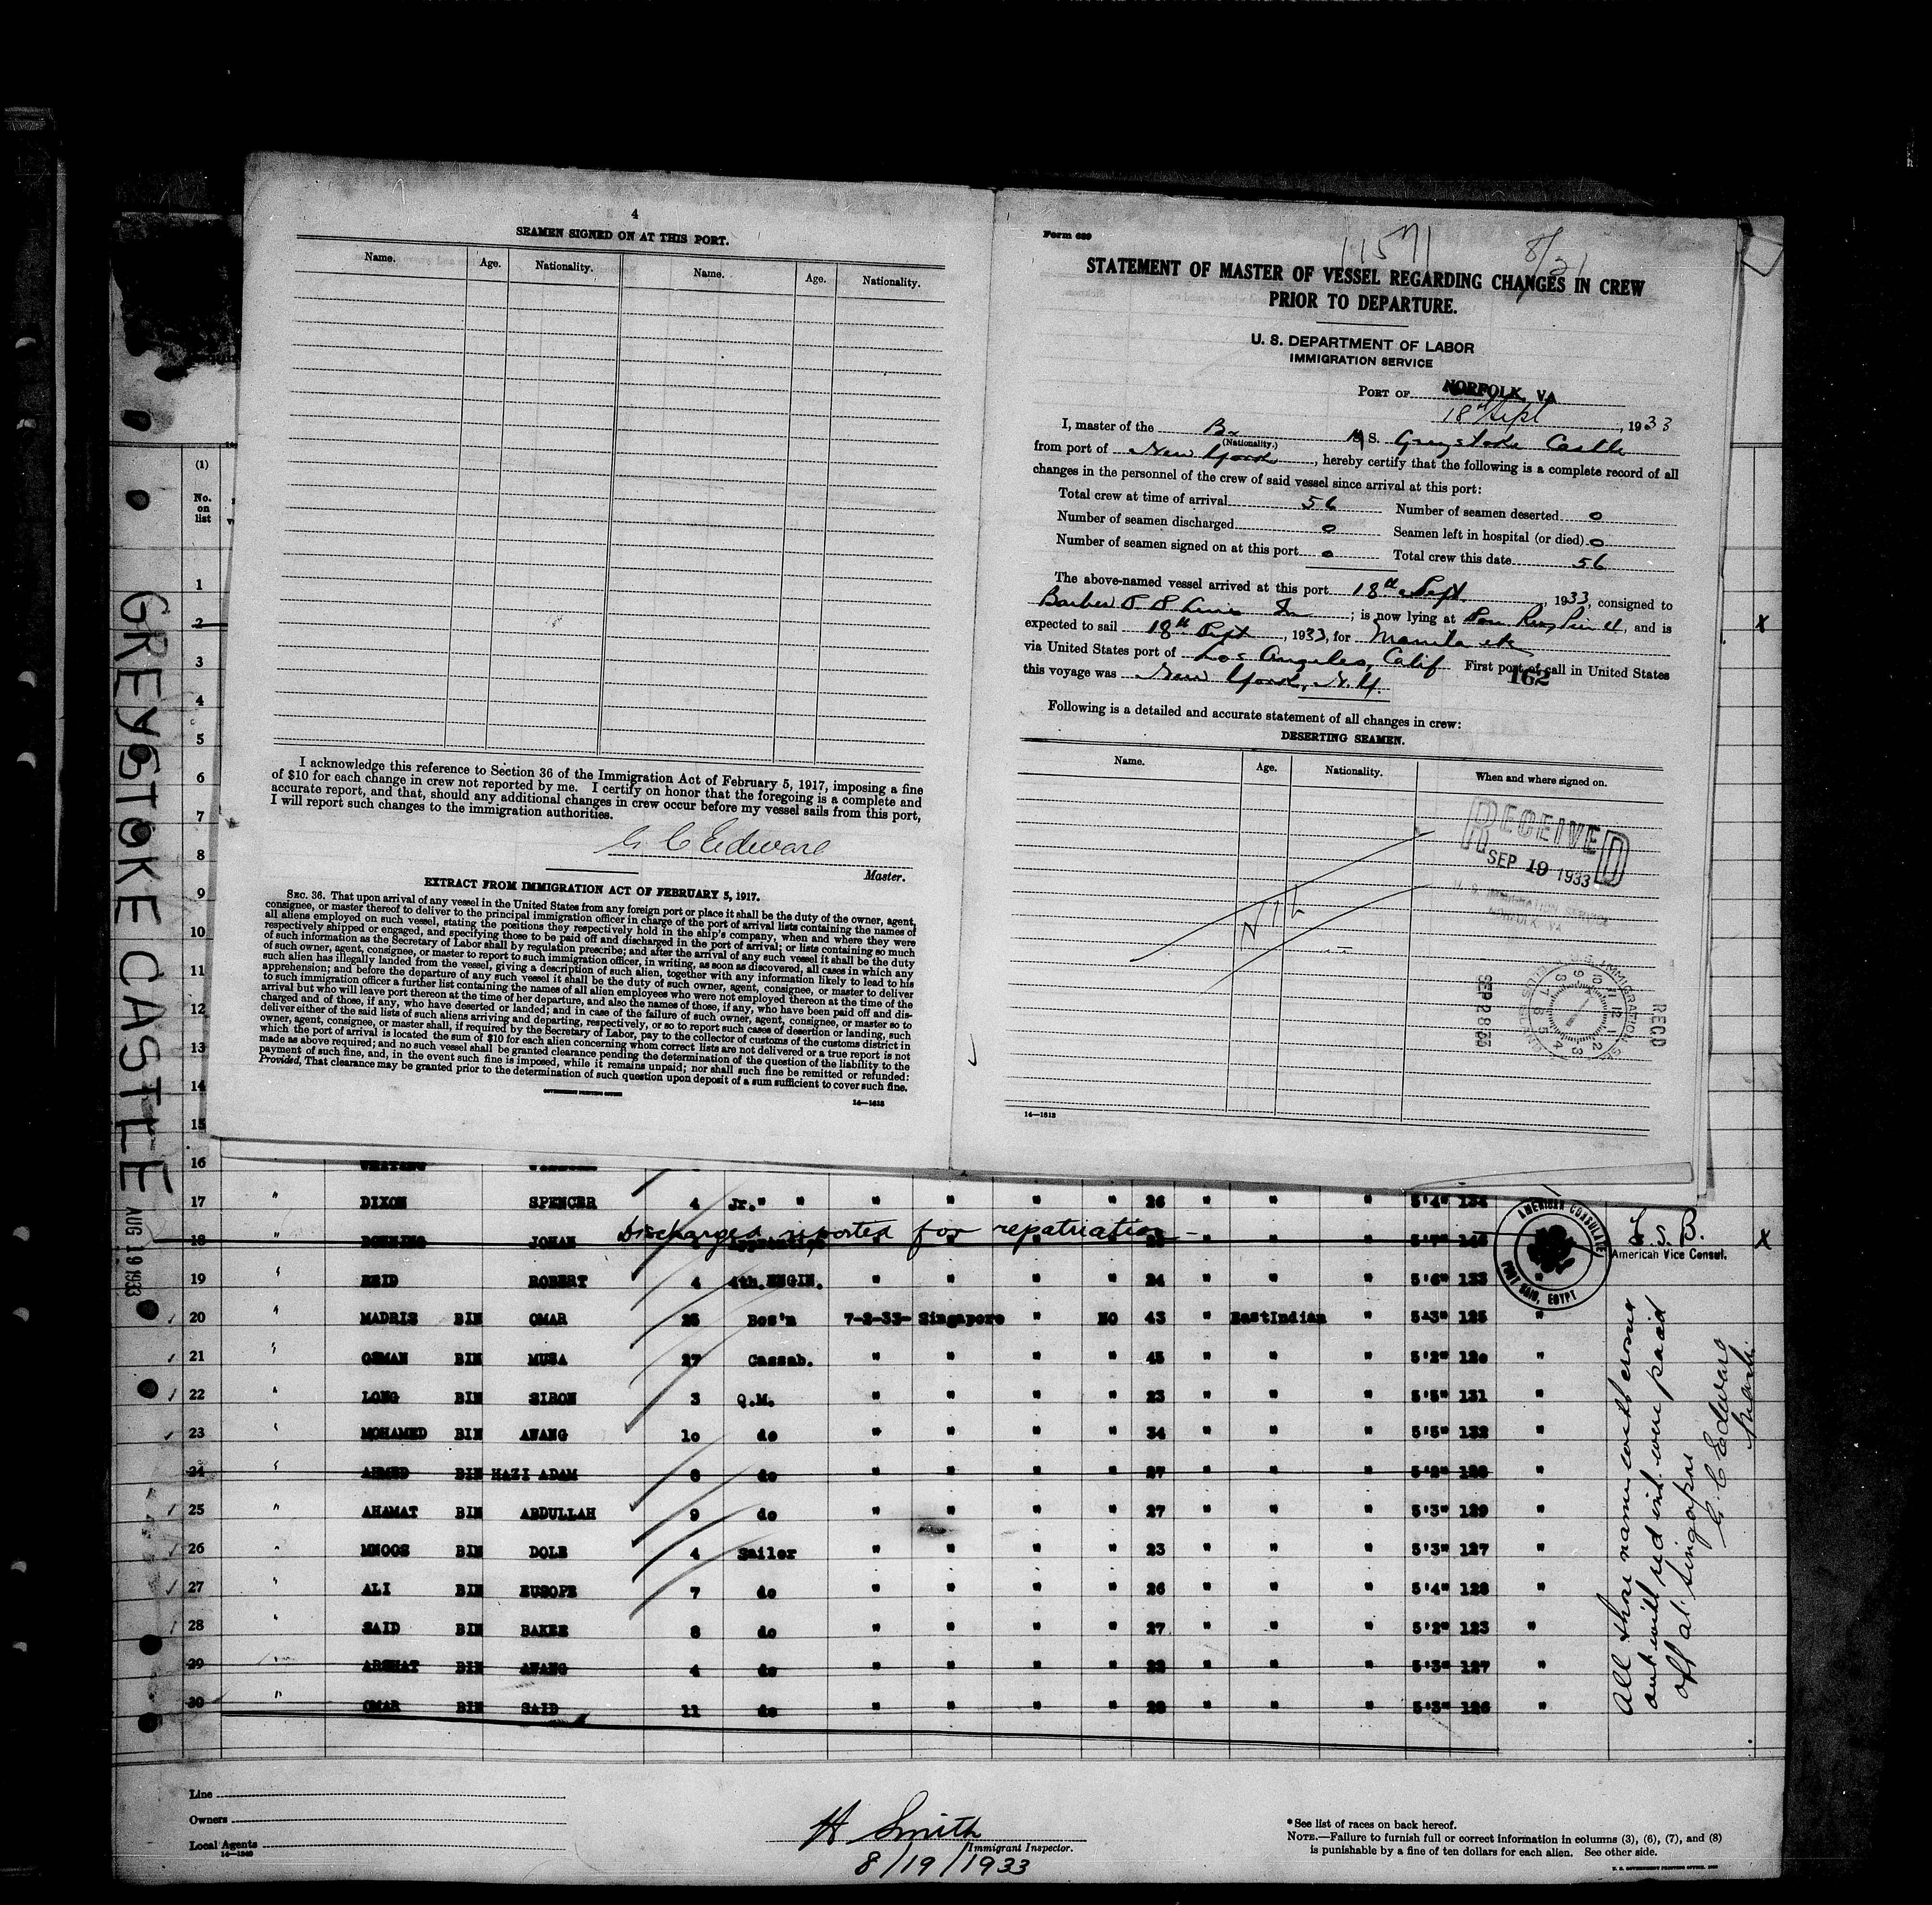 4
SEAMEN SIGNED ON AT THIS PORT.
Name. Age. Nationality. Name. Age. Nationality.
I acknowledge this reference to Section 36 of the Immigration Act of February 5, 1917, imposing a fine
of $10 for each change in crew not reported by me. I certify on honor that the foregoing is a complete and
accurate report, and that, should any additional changes in crew occur before my vessel sails from this port,
I will report such changes to the immigration authorities.
G C Edward
Master.
EXTRACT FROM IMMIGRATION ACT OF FEBRUARY 5, 1917.
SEC. 36. That upon arrival of any vessel in the United States from any foreign port or place it shall be the duty of the owner, agent,
consignee, or master thereof to deliver to the principal immigration officer in charge of the port of arrival lists containing the names of
all aliens employed on such vessel, stating the positions they respectively hold in the ship's company, when and where they were
respectively shipped or engaged, and specifying those to be paid off and discharged in the port of arrival; or lists containing so much
of such information as the Secretary of Labor shall by regulation prescribe; and after the arrival of any such vessel it shall be the duty
of such owner, agent, consignee, or master to report to such immigration officer, in writing, as soon as discovered, all cases in which any
such alien has illegally landed from the vessel, giving a description of such alien, together with any information likely to lead to his
apprehension; and before the departure of any such vessel it shall be the duty of such owner, agent, consignee, or master to deliver
to such immigration officer a further list containing the names of all alien employees who were not employed thereon at the time of the
arrival but who will leave port thereon at the time of her departure, and also the names of those, if any, who have been paid off and dis-
charged and of those, if any, who have deserted or landed; and in case of the failure of such owner, agent, consignee, or master so to
deliver either of the said lists of such aliens arriving and departing, respectively, or so to report such cases of desertion or landing, such
owner, agent, consignee, or master shall, if required by the Secretary of Labor, pay to the collector of customs of the customs district in
which the port of arrival is located the sum of $10 for each alien concerning whom correct lists are not delivered or a true report is not
made as above required; and no such vessel shall be granted clearance pending the determination of the question of the liability to the
payment of such fine, and, in the event such fine is imposed, while it remains unpaid; nor shall such fine be remitted or refunded:
Provided, That clearance may be granted prior to the determination of such question upon deposit of a sum sufficient to cover such fine.
GOVERNMENT PRINTING OFFICE
14—1613
Form 689
11571 8/31
STATEMENT OF MASTER OF VESSEL REGARDING CHANGES IN CREW
PRIOR TO DEPARTURE.
U. S. DEPARTMENT OF LABOR
IMMIGRATION SERVICE
PORT OF NORFOLK, VA
18th Sept, 1933
I, master of the Br S. Greystoke Castle
(Nationality.)
from port of New York, hereby certify that the following is a complete record of all
changes in the personnel of the crew of said vessel since arrival at this port:
Total crew at time of arrival 56 Number of seamen deserted 0
Number of seamen discharged 0 Seamen left in hospital (or died) 0
Number of seamen signed on at this port 0 Total crew this date 56
The above-named vessel arrived at this port 18th Sept., 1933, consigned to
Barber S S Lines In; is now lying at Pier 4, and is
expected to sail 18th Sept, 1933, for Manila etc
via United States port of Los Angeles, Calif First port of call in United States
162
this voyage was New York, N.Y.
Following is a detailed and accurate statement of all changes in crew:
DESERTING SEAMEN.
Name. Age. Nationality. When and where signed on.
RECEIVED
SEP 19 1933
U. S. IMMIGRATION SERVICE
NORFOLK VA
Nil
SEP 28 33
RECD
14—1613
GREYSTOKE CASTLE AUG 19 1933
(1)
No. on list
1
2 x
3
4
5
6
7
8
9
10
11
12
13
14
15
16
17 " DIXON SPENCER 4 Jr. " " " " " " 26 " " " 5'4" 134
Discharged reported for repatriation -
18 " JOHAN Apprentice x
AMERICAN CONSULATE PORT SAID, EGYPT
American Vice Consul.
19 " REID ROBERT 4 4th. ENGIN. " " " " 24 " " " 5'6" 133
20 " MADRIS BIN OMAR 25 Bos'n 7-2-33- Singapore " NO 43 " EastIndian " 5'3" 125 "
21 " OSMAN BIN MUSA 27 Cassab. " " " " 45 " " " 5'2" 120 "
22 " LONG BIN SIRON 3 Q.M. " " " " 23 " " " 5'5" 131 "
23 " MOHAMED BIN AWANG 10 do " " " " 34 " " " 5'5" 132 "
24 " AHMED BIN HAZI ADAM 8 do " " " " 27 " " " 5'2" 128 "
25 " AHAMAT BIN ABDULLAH 9 do " " " " 27 " " " 5'3" 129 "
26 " MNOOS BIN DOLE 4 Sailor " " " " 23 " " " 5'3" 127 "
27 " ALI BIN EUSOPE 7 do " " " " 26 " " " 5'4" 128 "
28 SAID BIN BAKER 8 do " " " " 27 " " " 5'2" 123 "
29 " ARSHAT BIN AWANG 4 do " " " " 22 " " " 5'3" 127 "
30 " OMAR BIN SAID 11 do " " " " 28 " " " 5'3" 126 "
All those names with
out with red ink were paid
off at Singapore
G C Edward
Master
Line
Owners
Local Agents
14—1240
H Smith
Immigrant Inspector.
8/19/1933
* See list of races on back hereof.
NOTE.—Failure to furnish full or correct information in columns (3), (6), (7), and (8)
is punishable by a fine of ten dollars for each alien. See other side.